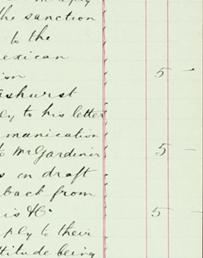 the sanction
to the
exican
ion 5 -
ashurst
ly to his letter
munication
to Mr Gardiner 5 -
s on draft
back from
is &c 5 -
eply to their
titude being